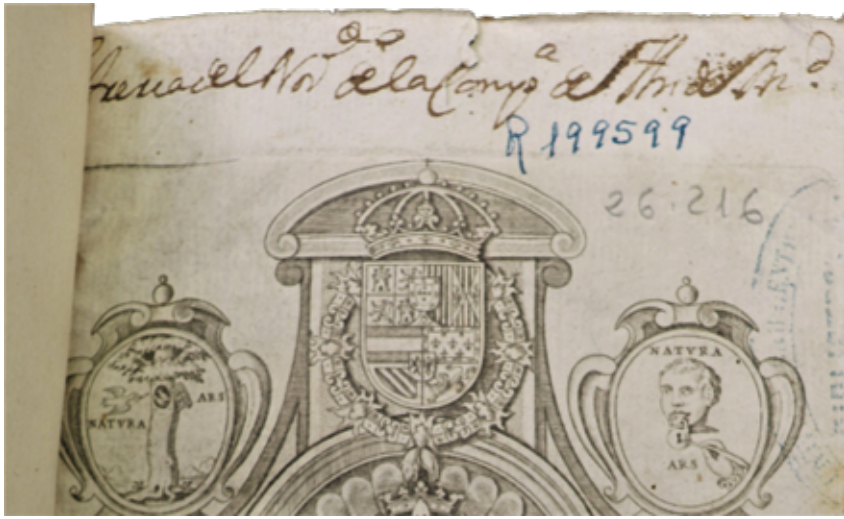 del Nov.do de la Comp.a de
R 199599
26.216
NATVRA
ARS
NATVRA
ARS